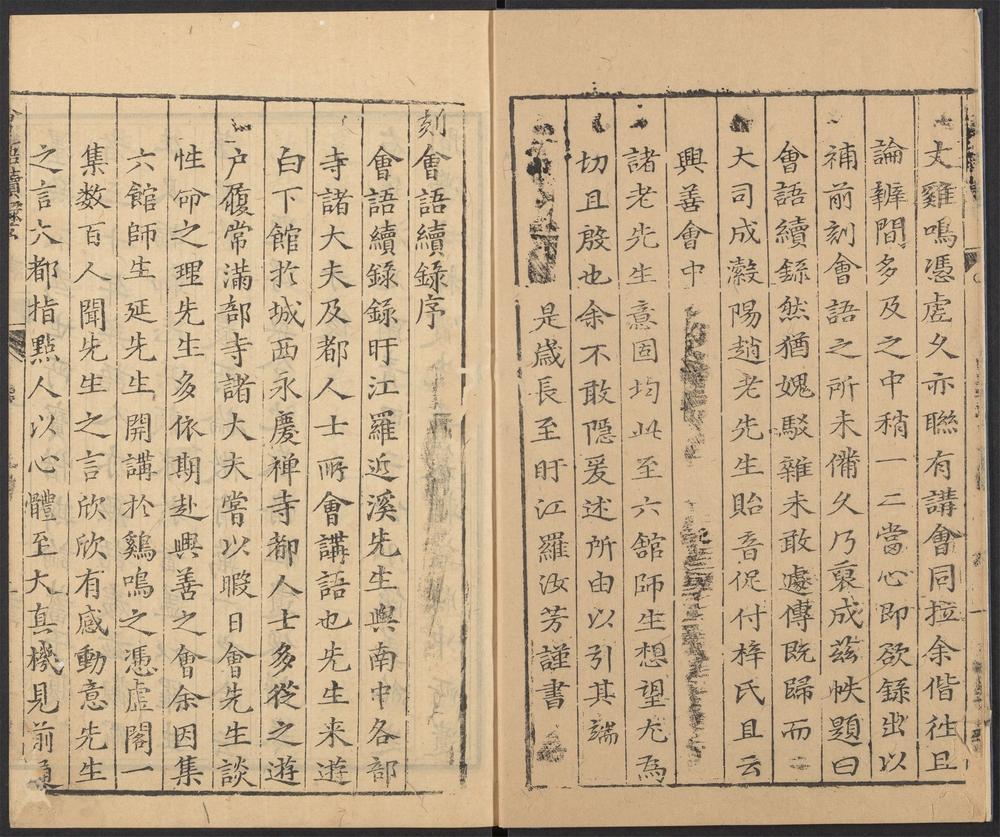 丈雞鳴憑虛久亦聯有講會同拉余偕徃且
論辯間多及之中稍一二當心即欲錄出以
補前刻會語之所未備久乃裒成茲帙題曰
會語續錄然猶媿駁雜未敢遽傳既歸而
大司成瀔陽趙老先生貽音促付梓氏且云
興善會中
諸老先生意固均此至六舘師生想望尤為
切且殷也余不敢隱爰述所由以引其端
是歲長至盱江羅汝芳謹書
刻會語續錄序
會語續錄錄盱江羅近溪先生與南中各部
寺諸大夫及都人士所會講語也先生来遊
白下館於城西永慶禅寺都人士多從之遊
户履常滿部寺諸大夫嘗以暇日會先生談
性命之理先生多依期赴興善之會余因集
六館師生延先生開講於鷄鳴之憑虛閣一
集数百人聞先生之言欣欣有感動意先生
之言大都指點人以心體至大真機見前通
會語續錄序